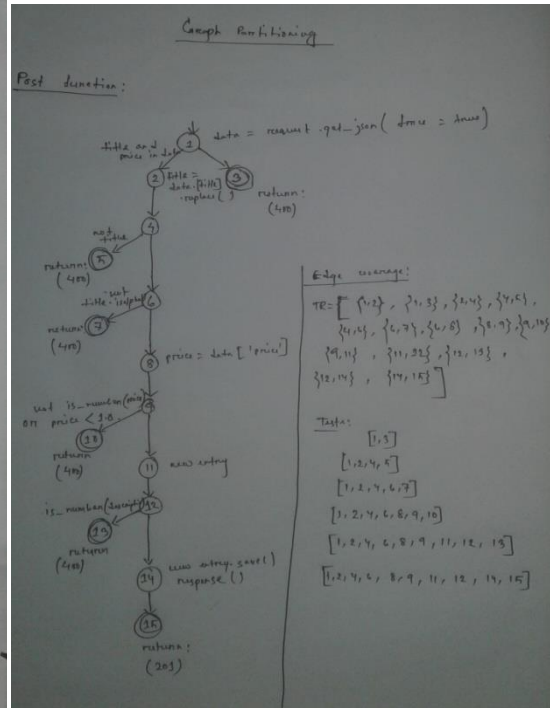 Graph Partitioning
Post function:
1
data = request.get_json( force = true)
title and
price in data
2
title =
data.[title]
.replace( )
3
return:
(400)
4
not
title
5
return:
(400)
6
not
title.isalpha
7
return:
(400)
8
price = data ['price']
9
not is_number(price)
or price < 1.0
10
return
(400)
11
new entry
is_number(descripti
12
13
return
(400)
14
new entry.save()
response ()
15
return:
(201)
Edge coverage:
TR= [ {1,2} , {1,3} , {2,4} , {4,5} ,
{4,6} , {6,7} , {6,8} , {8,9} , {9,10}
{9,11} , {11,12} , {12,13} ,
{12,14} , {14,15} ]
Tests:
[1,3]
[1,2,4,5]
[1,2,4,6,7]
[1,2,4,6,8,9,10]
[1,2,4,6,8,9,11,12,13]
[1,2,4,6,8,9,11,12,14,15]